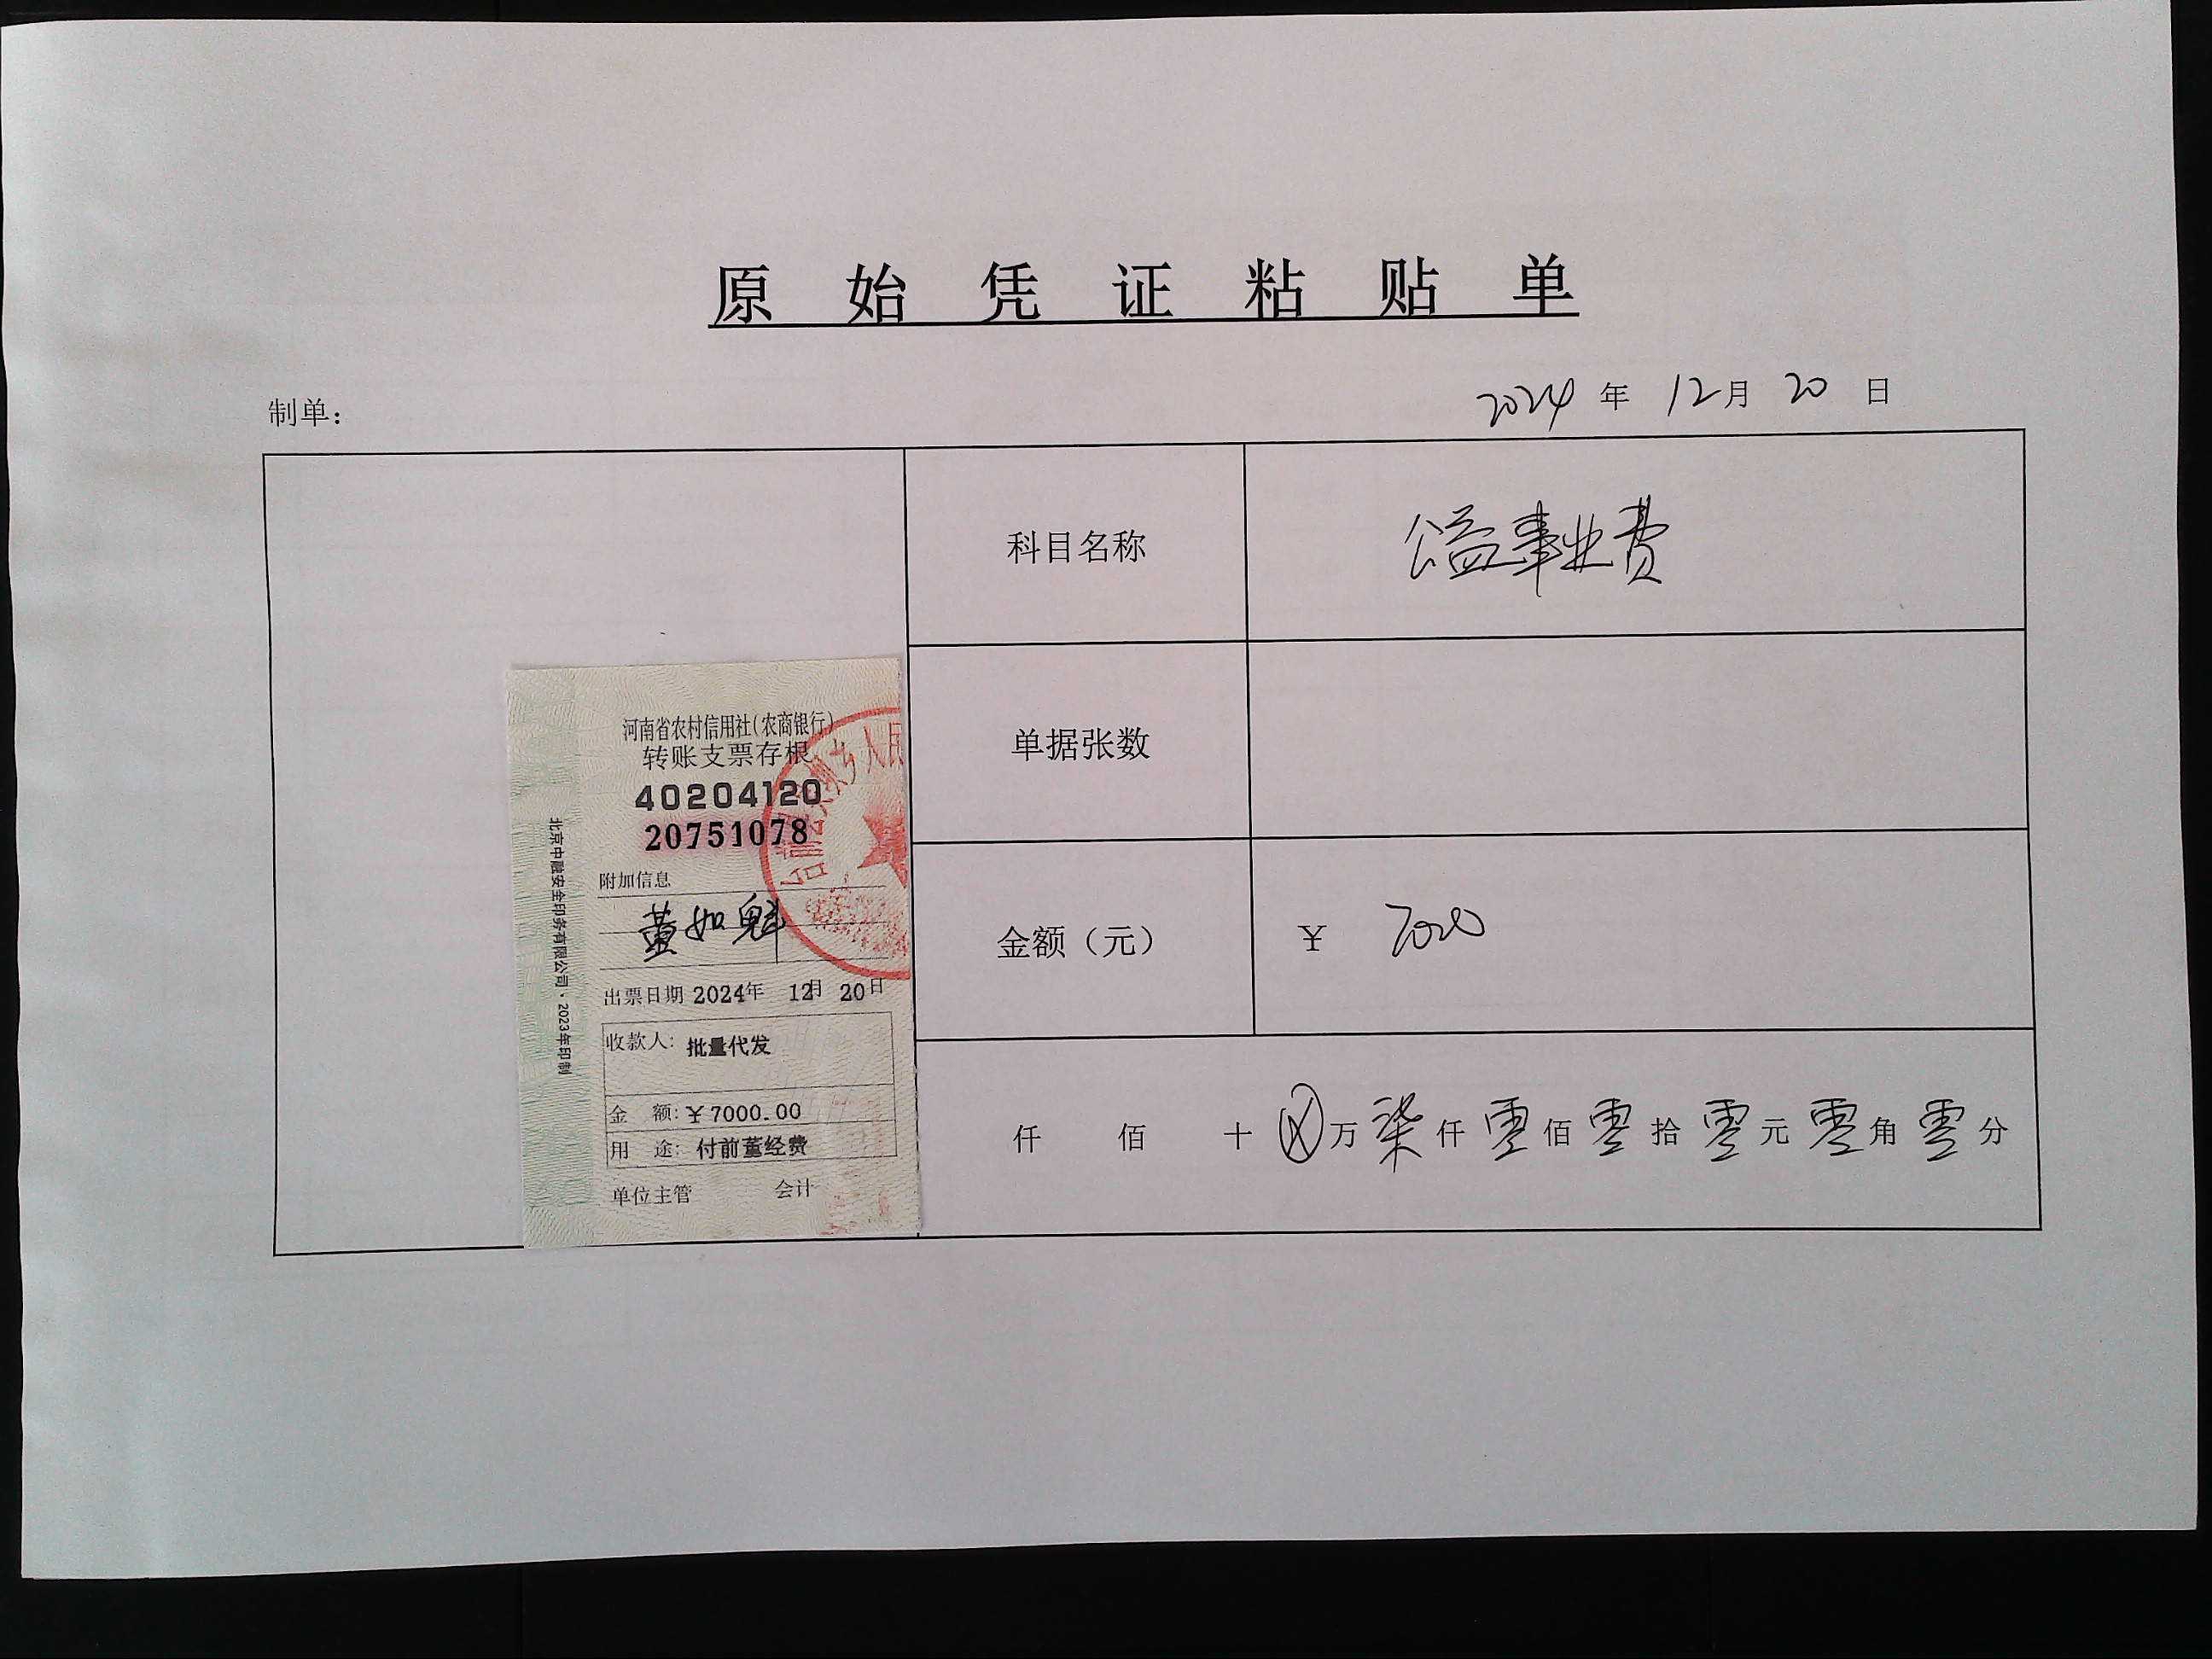 原始凭证粘贴单
制单：
2024 年 12月 20 日
科目名称
公益事业费
单据张数
金额（元）
¥ 7000
仟 佰 十 ⊗万 柒仟 零佰 零拾 零元 零角 零分
河南省农村信用社(农商银行)
转账支票存根
40204120
20751078
附加信息
董如魁
出票日期 2024年 12月 20日
收款人: 批量代发
金 额: ¥7000.00
用 途: 付前董经费
单位主管 会计
北京中融安全印务有限公司、2023年印制
乡人民